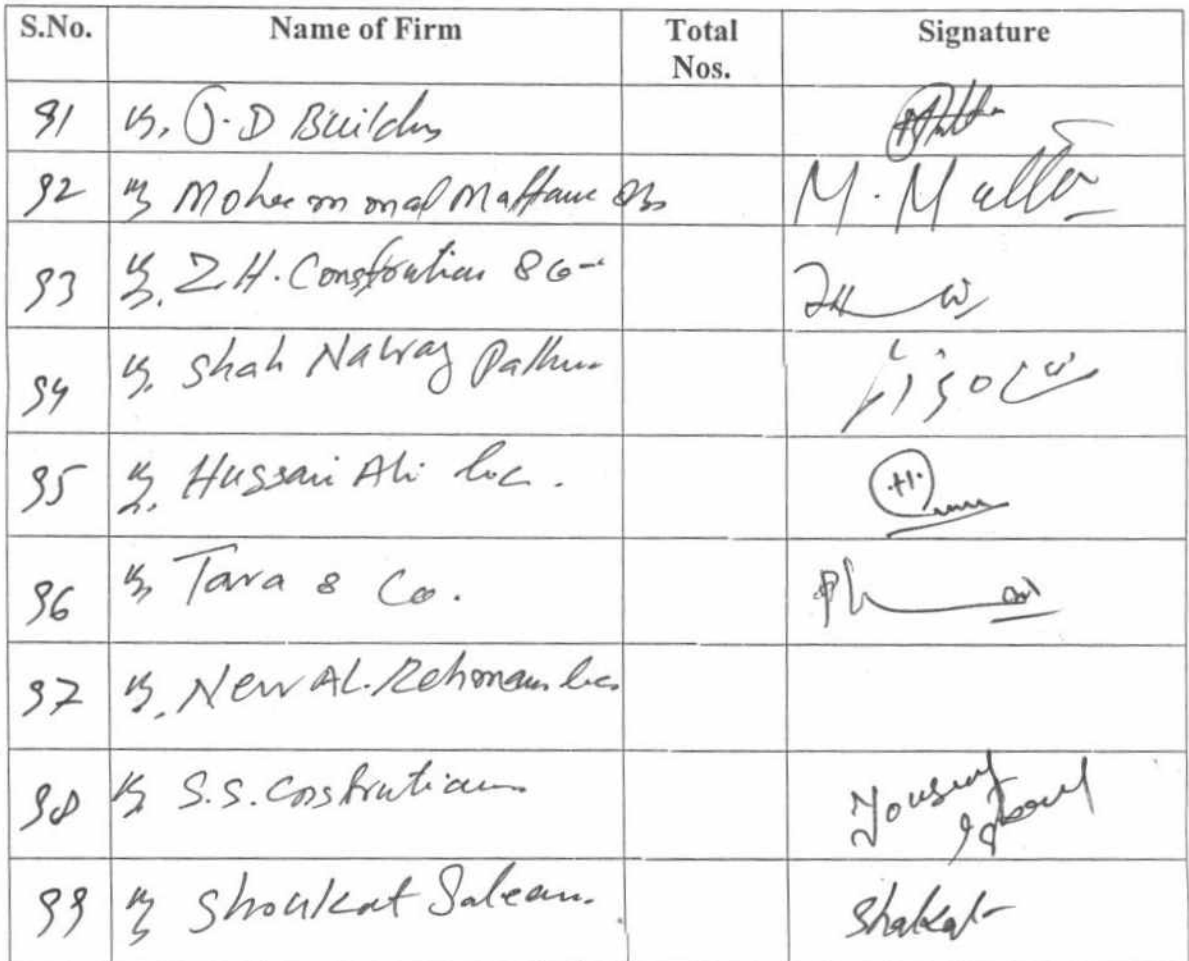 S.No. Name of Firm Total Nos. Signature
91 M/s. J.D Builders
92 M/s Mohammad M. M
93 M/s. Z.H. Constrution & Co- ZH
94 M/s. Shah Nawaz Pathan شاہ نواز
95 M/s. Hussain Ali H.
96 M/s Tara & Co.
97 M/s. New AL. Rehman
98 M/s S.S. Constrution Yousuf
99 M/s Shoukat Saleem. Shakat